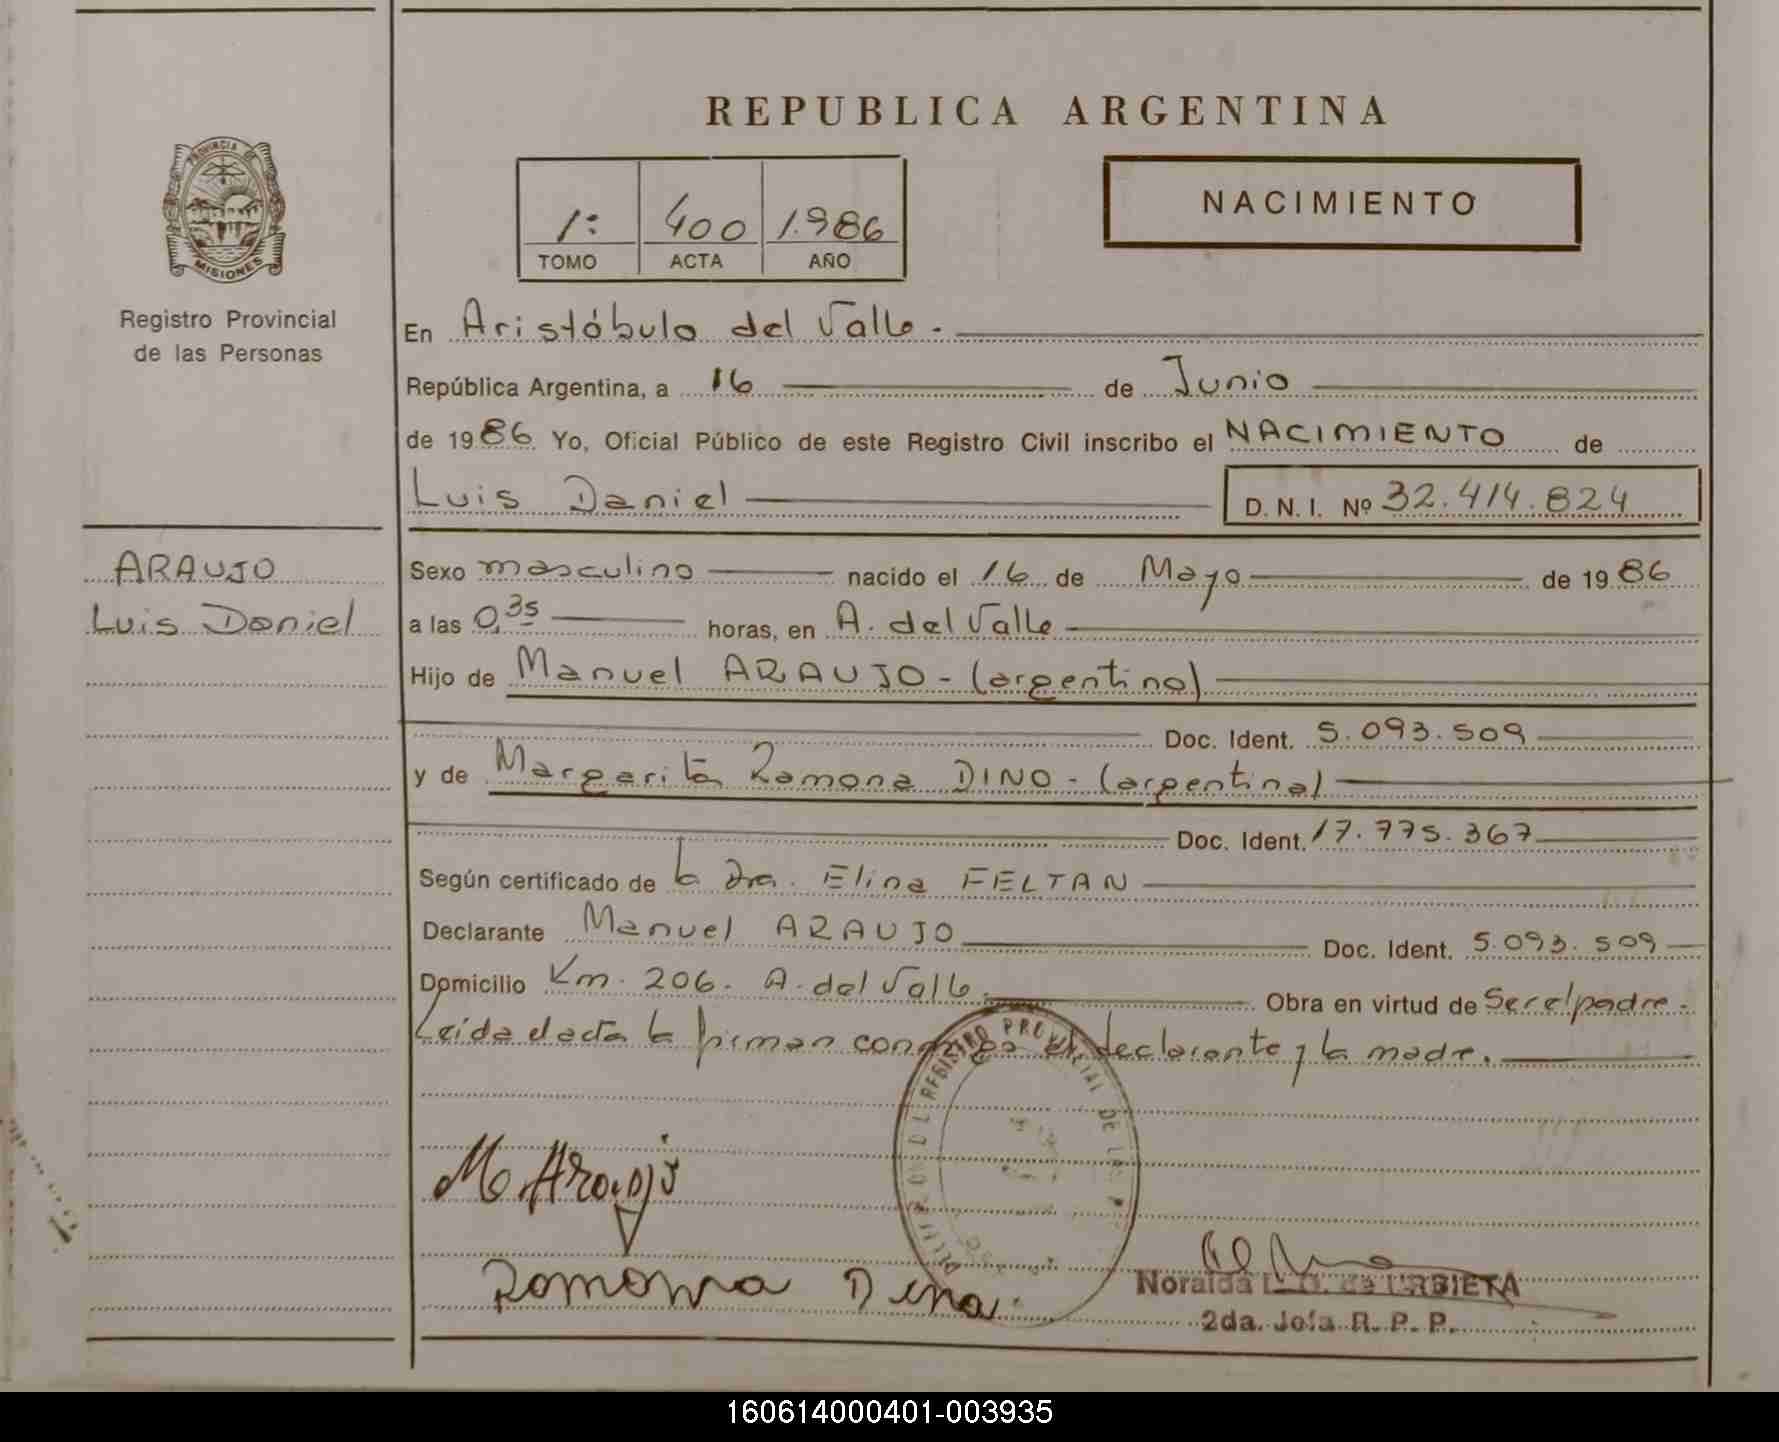 REPUBLICA ARGENTINA
NACIMIENTO
1: 400 1.986
TOMO ACTA AÑO
PROVINCIA DE
MISIONES
Registro Provincial
de las Personas
ARAUJO
Luis Daniel
En Aristóbulo del Valle.
República Argentina, a 16 de Junio
de 1986 Yo, Oficial Público de este Registro Civil inscribo el NACIMIENTO de
Luis Daniel D. N. I. Nº 32.414.824
Sexo masculino nacido el 16 de Mayo de 1986
a las 0,35 horas, en A. del Valle
Hijo de Manuel ARAUJO - (argentino)
Doc. Ident. 5.093.509
y de Margarita Ramona DINO - (argentina)
Doc. Ident. 17.775.367
Según certificado de la Dra. Elina FELTAN
Declarante Manuel ARAUJO Doc. Ident. 5.093.509
Domicilio Km. 206. A. del Valle. Obra en virtud de Ser el padre.
Leida el acta la firman conmigo el declarante y la madre.
REGISTRO PROVINCIAL DE LAS
M. Araujo
Ramona Dina.
Noraida L. D. de URBIETA
2da. Jefa R. P. P.
160614000401-003935